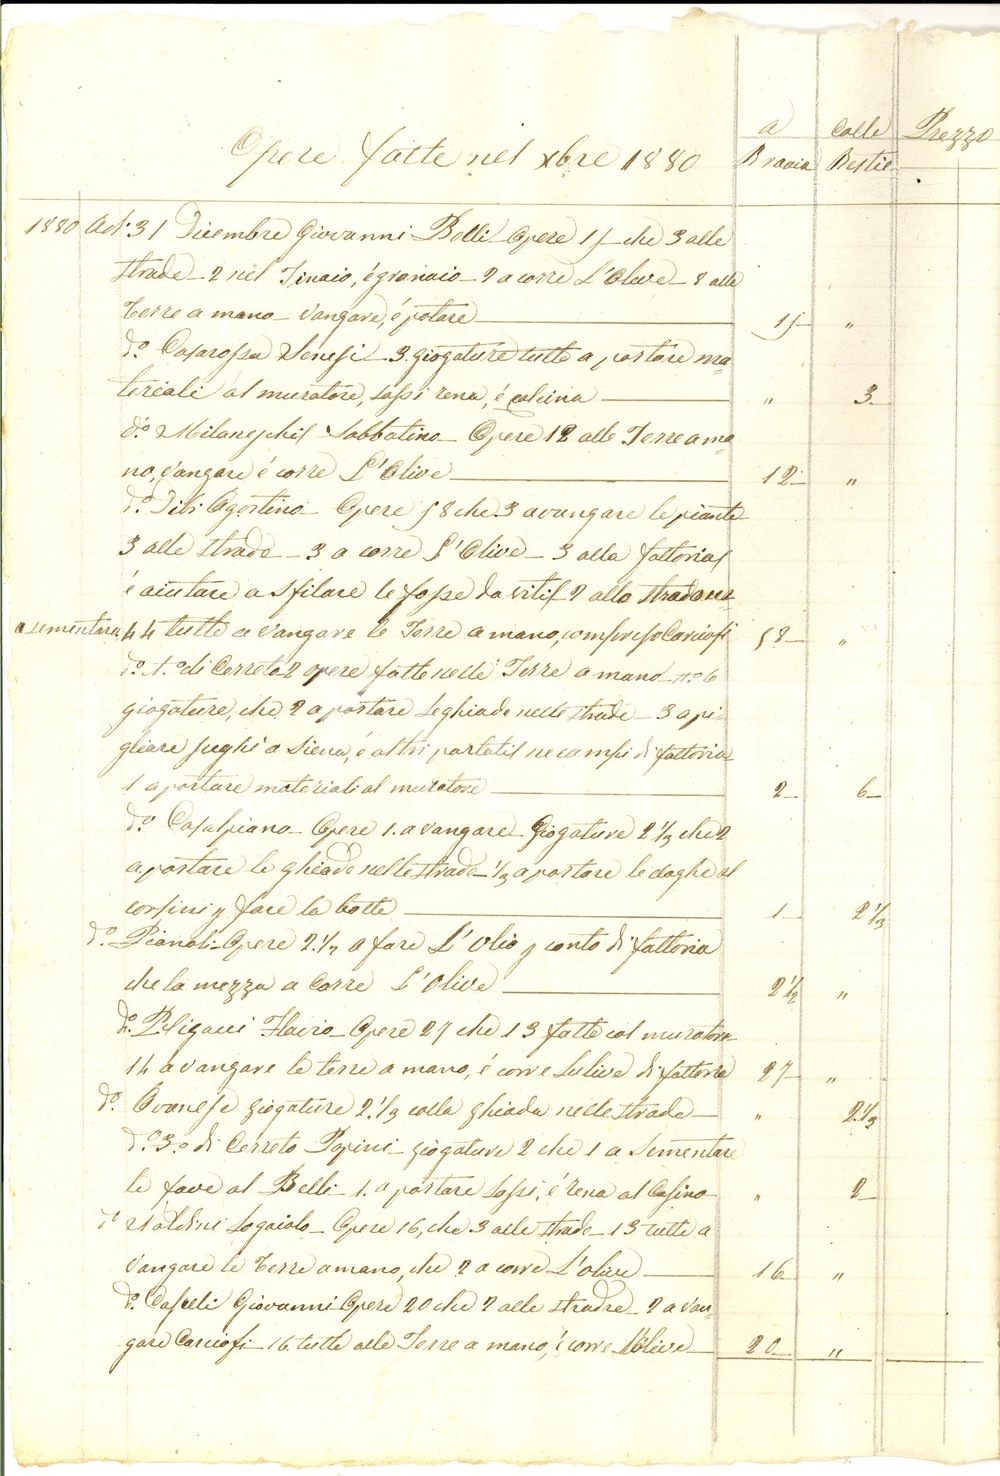 a Colle Prezzo
Opere fatte nel xbre 1880 Braccia Bestie
1880 Adì 31 Dicembre Giovanni Belli Opere 15 che 3 alle
strade 2 nel Tinaio, é granaio 2 a corre L'Olive 8 alle
Terre a mano vangare, é potare 15 "
d.o Casarossa Senesi 3 giogature tutte a portare ma=
teriali al muratore, sassi rena, é calcina " 3
d.o Milaneschi Sabbatino Opere 12 alle Terre a ma
no, vangare é corre L'Olive 12 "
d.o Agostino Opere 58 che 3 a vangare le piante
3 alle strade 3 a corre L'Olive 3 alla fattoria
é aiutare a sfilare le fosse da viti 2 allo stradone
a sementare, 44 tutte a vangare le Terre a mano, compreso Carciofi 58 "
d.o 1.o di Cerreto 2 opere fatte nelle Terre a mano n.o 6
giogature, che 2 a portare le ghiade nelle strade 3 a pi=
gliare sughi a Siena, é altri portati ne campi di fattoria
1 a portare materiali al muratore 2 6
d.o Casalpiano Opere 1. a vangare Giogature 2 1/3 che 2
a portare le ghiade nelle strade 1/3 a portare le doghe al
corsini p fare la botte 1 2 1/3
d.o Pianoli Opere 2. 1/2 a fare L'Olio p conto di fattoria
che la mezza a Corre L'Olive 2 1/2 "
d.o Peligacci Flavio Opere 27 che 13 fatte col muratore
14 a vangare le terre a mano, é corre Lulive di fattoria 27 "
d.o Ovanese giogature 2. 1/3 colla ghiada nelle strade " 2. 1/3
d.o 3.o di Cerreto Popini giogature 2 che 1 a Sementare
le fave al Belli 1. a portare sassi, é rena al Casino " 2
d.o Logaiolo Opere 16, che 3 alle strade 13 tutte a
vangare le Terre a mano, che 2 a corre L'olive 16 "
d.o Caselli Giovanni Opere 20 che 2 alle stradre 2 a van=
gare Carciofi 16 tutte alle Terre a mano, é corre L'Olive 20 "